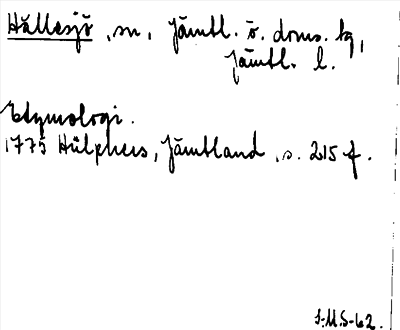 Hällesjö, sn, Jämtl. ö. doms. tg,
Jämtl. l.
Etymologi.
1775 Hülphers, Jämtland, s. 215 f.
J.M.S-62.